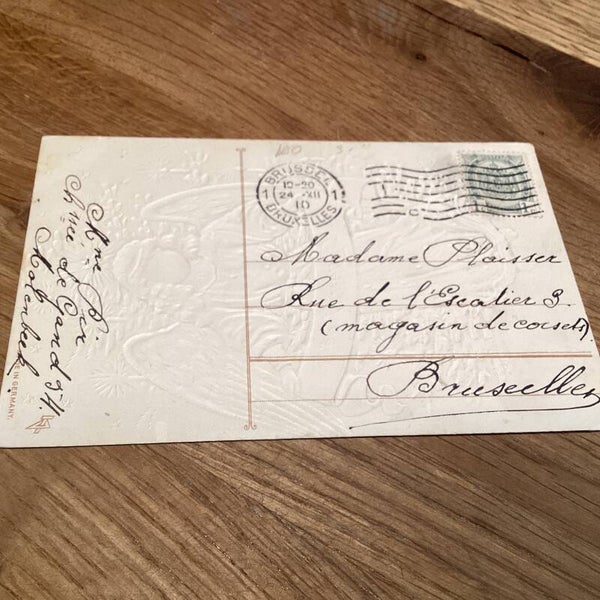 BRUSSEL
1 10-20 1
24 XII
10
BRUXELLES
Madame Plaisser
Rue de l'Escalier 3.
(magasin de corsets)
Bruxelles
Ch[ée] de Gand 51.
Molenbeek
E IN GERMANY.